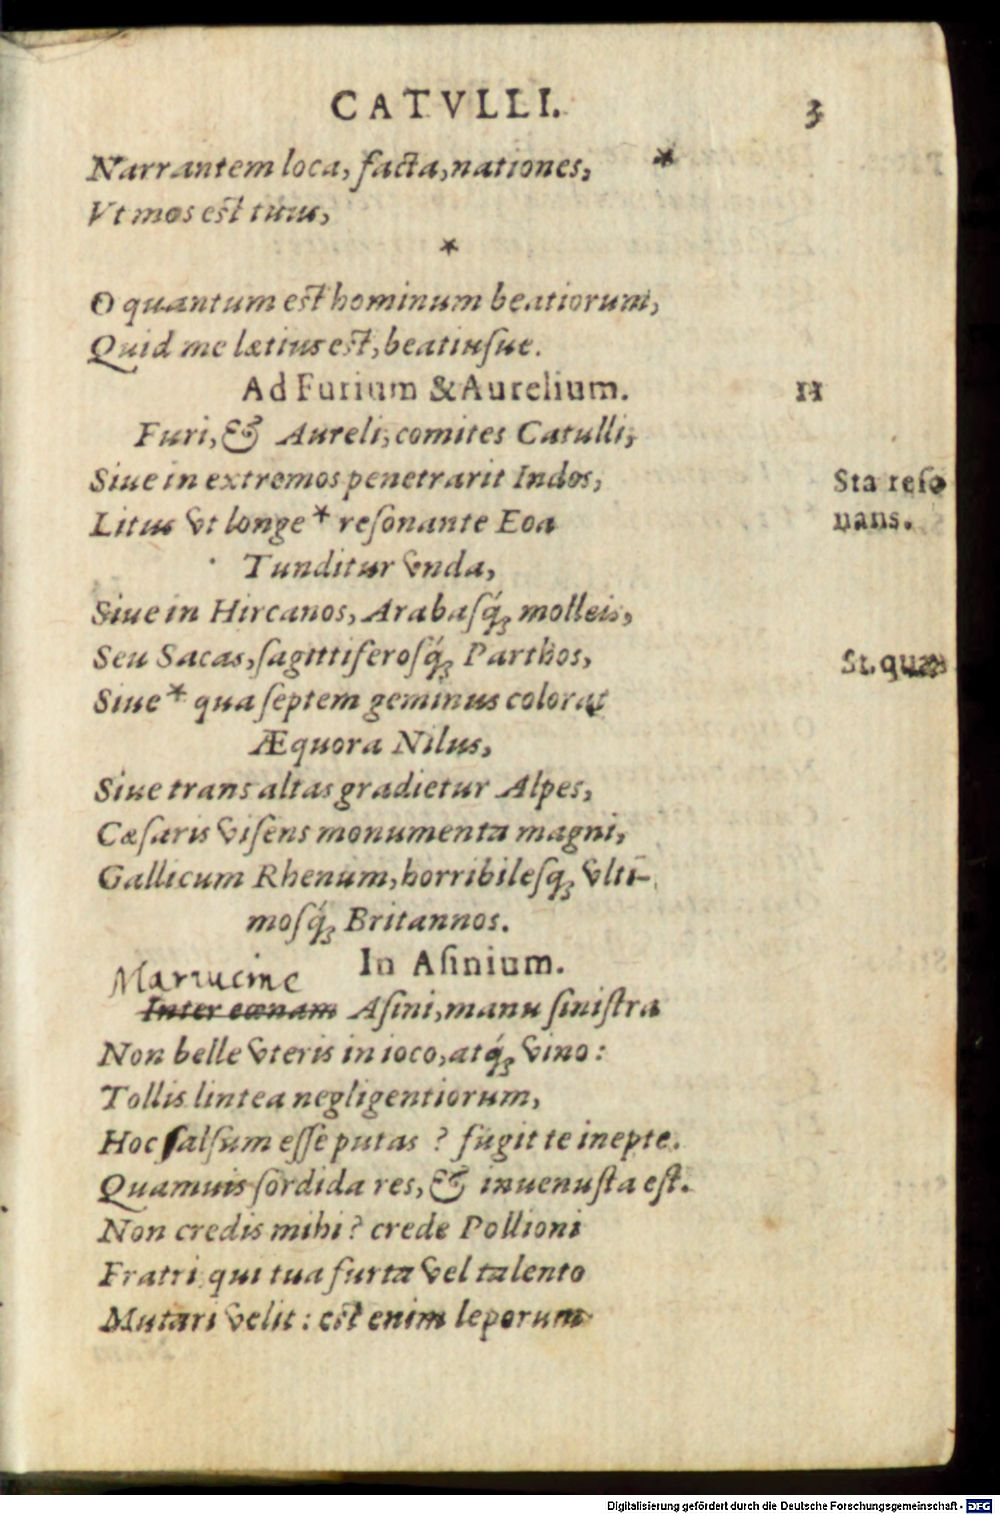 CATVLLI. 3
Narrantem loca, facta, nationes, *
Vt mos est tuus,
*
O quantum est hominum beatiorum,
Quid me lætius est, beatiusue.
Ad Furium & Aurelium. 11
Furi, & Aureli, comites Catulli,
Siue in extremos penetrarit Indos, Sta reso
Litus vt longe * resonante Eoa nans.
Tunditur vnda,
Siue in Hircanos, Arabasq́; molleis,
Seu Sacas, sagittiferosq́; Parthos, St. quæ
Siue * qua septem geminus colorat
Æquora Nilus,
Siue trans altas gradietur Alpes,
Cæsaris visens monumenta magni,
Gallicum Rhenum, horribilesq; vlti-
mosq́; Britannos.
In Asinium.
Marrucine
Inter cœnam Asini, manu sinistra
Non belle vteris in ioco, atq́; vino:
Tollis lintea negligentiorum,
Hoc salsum esse putas? fugit te inepte.
Quamuis sordida res, & inuenusta est.
Non credis mihi? crede Pollioni
Fratri qui tua furta vel talento
Mutari velit: est enim leporum
Digitalisierung gefördert durch die Deutsche Forschungsgemeinschaft - DFG